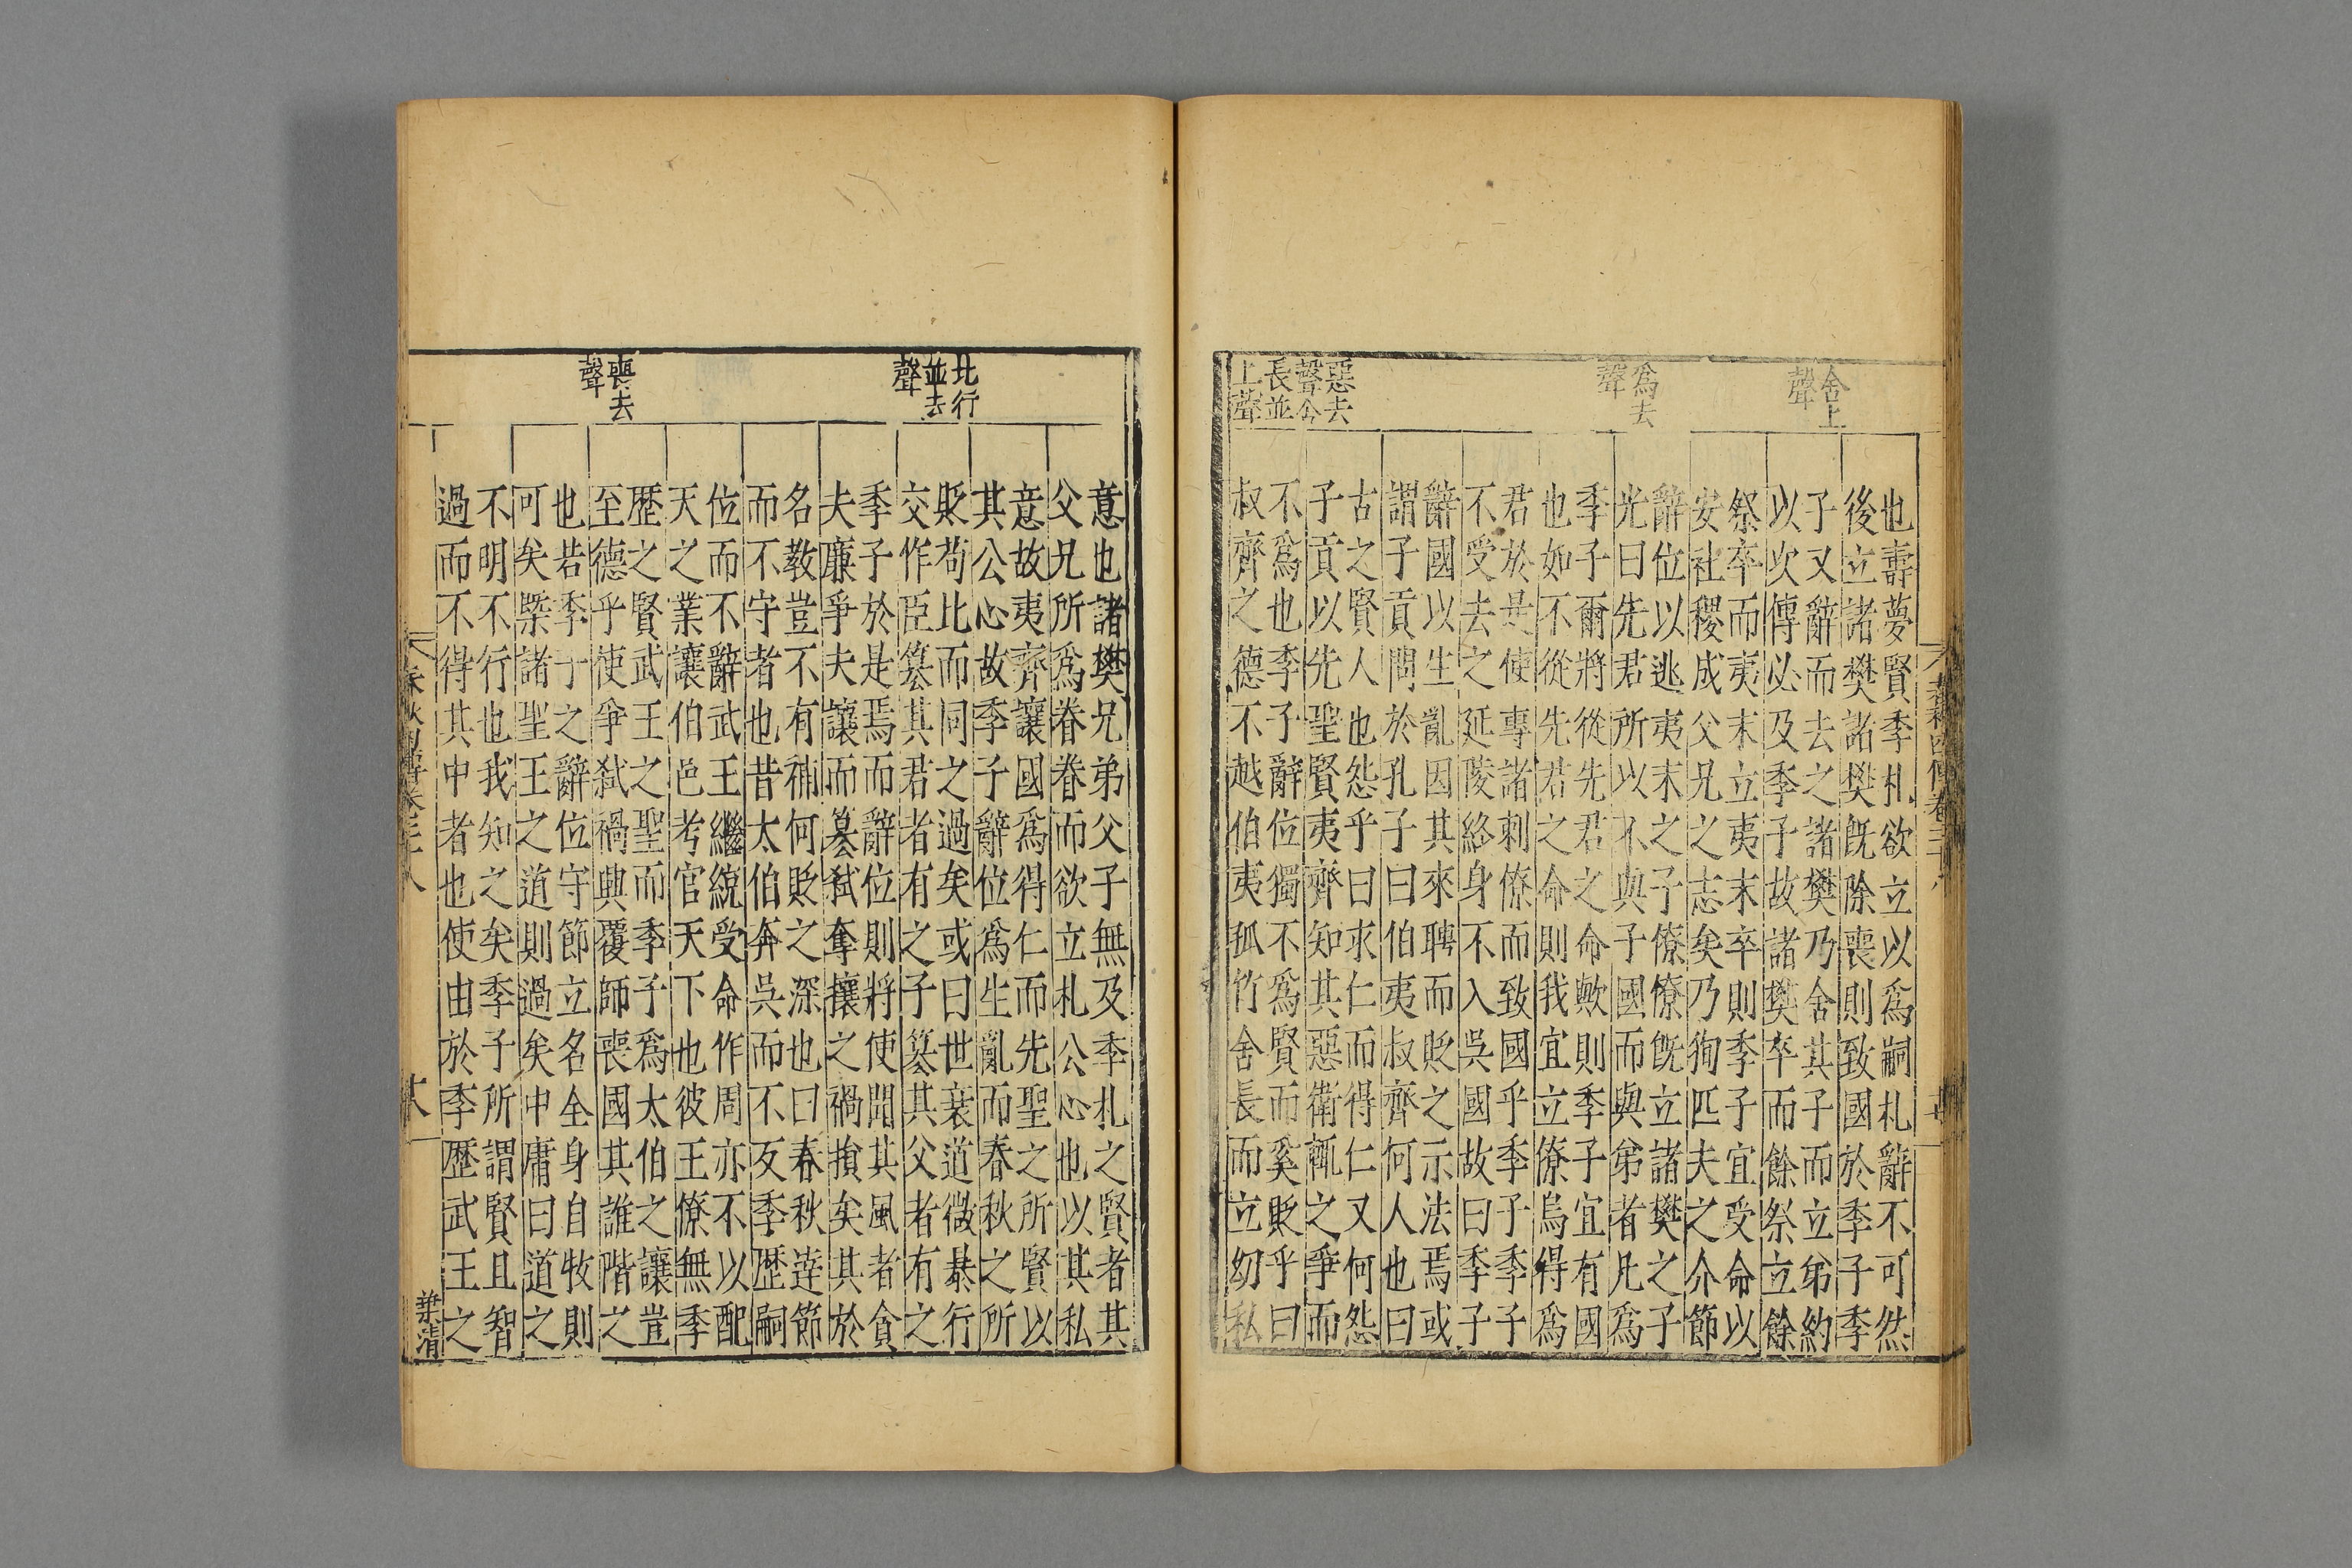 舍上
聲
爲去
聲
惡去
聲令
長並
上聲
也壽夢賢季札欲立以爲嗣札辭不可然
後立諸樊諸樊旣除喪則致國於季子季
子又辭而去之諸樊乃舍其子而立弟約
以次傳必及季子故諸樊卒而餘祭立餘
祭卒而夷末立夷末卒則季子宜受命以
安社稷成父兄之志矣乃狥匹夫之介節
辭位以逃夷末之子僚旣立諸樊之子
光曰先君所以不與子國而與弟者凡爲
季子爾將從先君之命歟則季子宜有國
也如不從先君之命則我宜立僚烏得爲
君於是使專諸刺僚而致國乎季子季子
不受去之延陵終身不入吳國故曰季子
辭國以生亂因其來聘而貶之示法焉或
謂子貢問於孔子曰伯夷叔齊何人也曰
古之賢人也怨乎曰求仁而得仁又何怨
子貢以先聖賢夷齊知其惡衛輒之爭而
不爲也季子辭位獨不爲賢而奚貶乎曰
叔齊之德不越伯夷孤竹舍長而立幼私
意也諸樊兄弟父子無及季札之賢者其
父兄所爲眷眷而欲立札公心也以其私
意故夷齊讓國爲得仁而先聖之所賢以
其公心故季子辭位爲生亂而春秋之所
貶苟比而同之過矣或曰世衰道微暴行
交作臣簒其君者有之子簒其父者有之
季子於是焉而辭位則將使聞其風者貪
夫廉爭夫讓而簒弑奪攘之禍損矣其於
名敎豈不有補何貶之深也曰春秋達節
而不守者也昔太伯奔吳而不反季歷嗣
位而不辭武王繼統受命作周亦不以配
天之業讓伯邑考官天下也彼王僚無季
歷之賢武王之聖而季子爲太伯之讓豈
至德乎使爭弑禍興覆師喪國其誰階之
也若季子之辭位守節立名全身自牧則
可矣槩諸聖王之道則過矣中庸曰道之
不明不行也我知之矣季子所謂賢且智
過而不得其中者也使由於季歷武王之
比行
並去
聲
喪去
聲
葉清